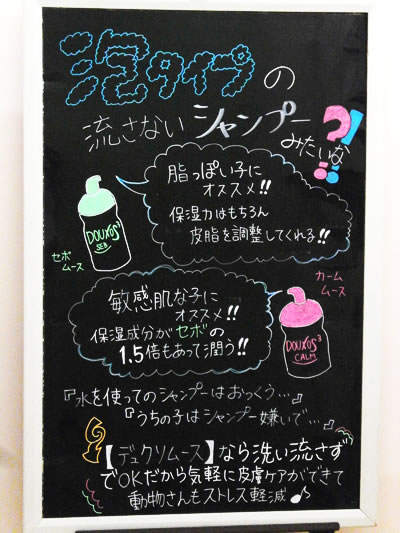 泡タイプの
流さないシャンプー
みたいな?!
脂っぽい子に
オススメ!!
保湿力はもちろん
皮脂を調整してくれる!!
DOUXO S3
SEB
セボ
ムース
敏感肌な子に
オススメ!!
保湿成分がセボの
1.5倍もあって潤う!!
カーム
ムース
DOUXO S3
CALM
『水を使ってのシャンプーはおっくう…』
『うちの子はシャンプー嫌いで…』
【デュクソムース】なら洗い流さず
でOKだから気軽に皮膚ケアができて
動物さんもストレス軽減♪